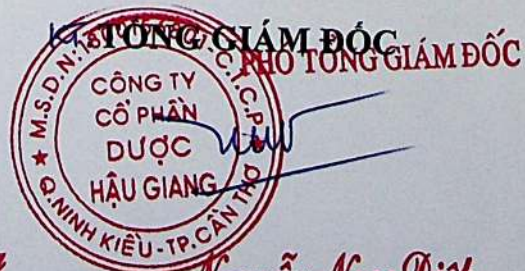 KT. TỔNG GIÁM ĐỐC
PHÓ TỔNG GIÁM ĐỐC
M.S.D.N:
C.T.C.P
CÔNG TY
CỔ PHẦN
DƯỢC
HẬU GIANG
Q.NINH KIỀU-TP.CẦN THƠ